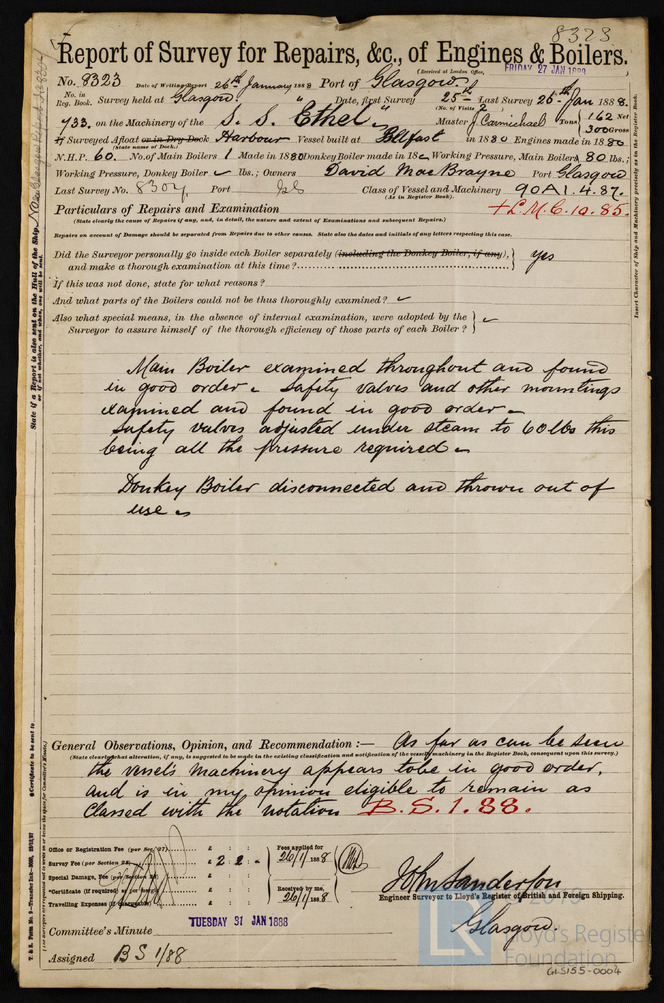 8323
Report of Survey for Repairs, &c., of Engines & Boilers.
(Received at London Office, FRIDAY 27 JAN 1888
No. 8323 Date of Writing Report 26th January 1888 Port of Glasgow.
No. in Reg. Book. Survey held at Glasgow. Date, first Survey 25th Last Survey 26th Jan 1888.
(No. of Visits 2
733. on the Machinery of the S. S. Ethel Master J. Carmichael Tons 162 Net 300 Gross
If Surveyed Afloat or in Dry Dock Harbour Vessel built at Belfast in 1880 Engines made in 1880
(State name of Dock.)
N.H.P. 60. No. of Main Boilers 1 Made in 1880 Donkey Boiler made in 18 Working Pressure, Main Boilers 80 lbs.;
Working Pressure, Donkey Boiler lbs.; Owners David MacBrayne Port Glasgow
Last Survey No. 8304 Port Gls Class of Vessel and Machinery 90A1. 4. 87.
(As in Register Book).
+L.M.C. 10. 85.
Particulars of Repairs and Examination
(State clearly the cause of Repairs if any, and, in detail, the nature and extent of Examinations and subsequent Repairs.)
Repairs on account of Damage should be separated from Repairs due to other causes. State also the dates and initials of any letters respecting this case.
Did the Surveyor personally go inside each Boiler separately (including the Donkey Boiler, if any), and make a thorough examination at this time? yes
If this was not done, state for what reasons?
And what parts of the Boilers could not be thus thoroughly examined?
Also what special means, in the absence of internal examination, were adopted by the
Surveyor to assure himself of the thorough efficiency of those parts of each Boiler?
Main Boiler examined throughout and found
in good order. Safety valves and other mountings
examined and found in good order.
Safety valves adjusted under steam to 60 lbs this
being all the pressure required.
Donkey Boiler disconnected and thrown out of
use.
General Observations, Opinion, and Recommendation:— As far as can be seen
(State clearly what alteration, if any, is suggested to be made in the existing classification and notification of the vessel's machinery in the Register Book, consequent upon this survey.)
the vessels machinery appears to be in good order,
and is in my opinion eligible to remain as
Classed with the notation B.S. 1. 88.
Office or Registration Fee (per Sec. 27) £ : :
Survey Fee (per Section 28) £ 2 : 2 : -
Special Damage, Fee (per Section 28) £ : :
*Certificate (if required) £ : :
Travelling Expenses (if chargeable) £ : :
Fees applied for 26/1/1888
Received by me, 26/1/1888
John Sanderson
Engineer Surveyor to Lloyd's Register of British and Foreign Shipping.
Glasgow.
Committee's Minute TUESDAY 31 JAN 1888
Assigned B S 1/88
LR
Lloyd's Register
Foundation
GLS155-0004
State if a Report is also sent on the Hull of the Ship. No
or if not whether, and when, one will be sent.
*Certificate to be sent to
Insert Character of Ship and Machinery precisely as in the Register Book.